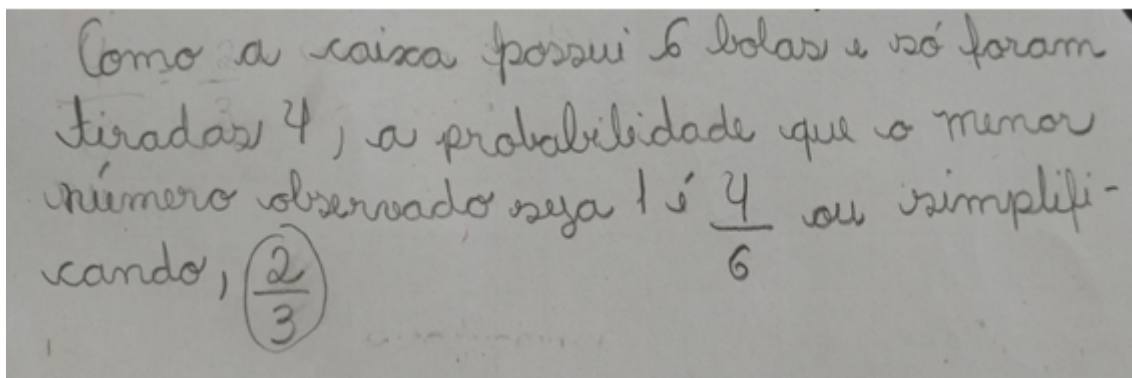 Como a caixa possui 6 bolas e só foram
tiradas 4, a probabilidade que o menor
número observado seja 1 é 4/6 ou simplifi-
cando, 2/3